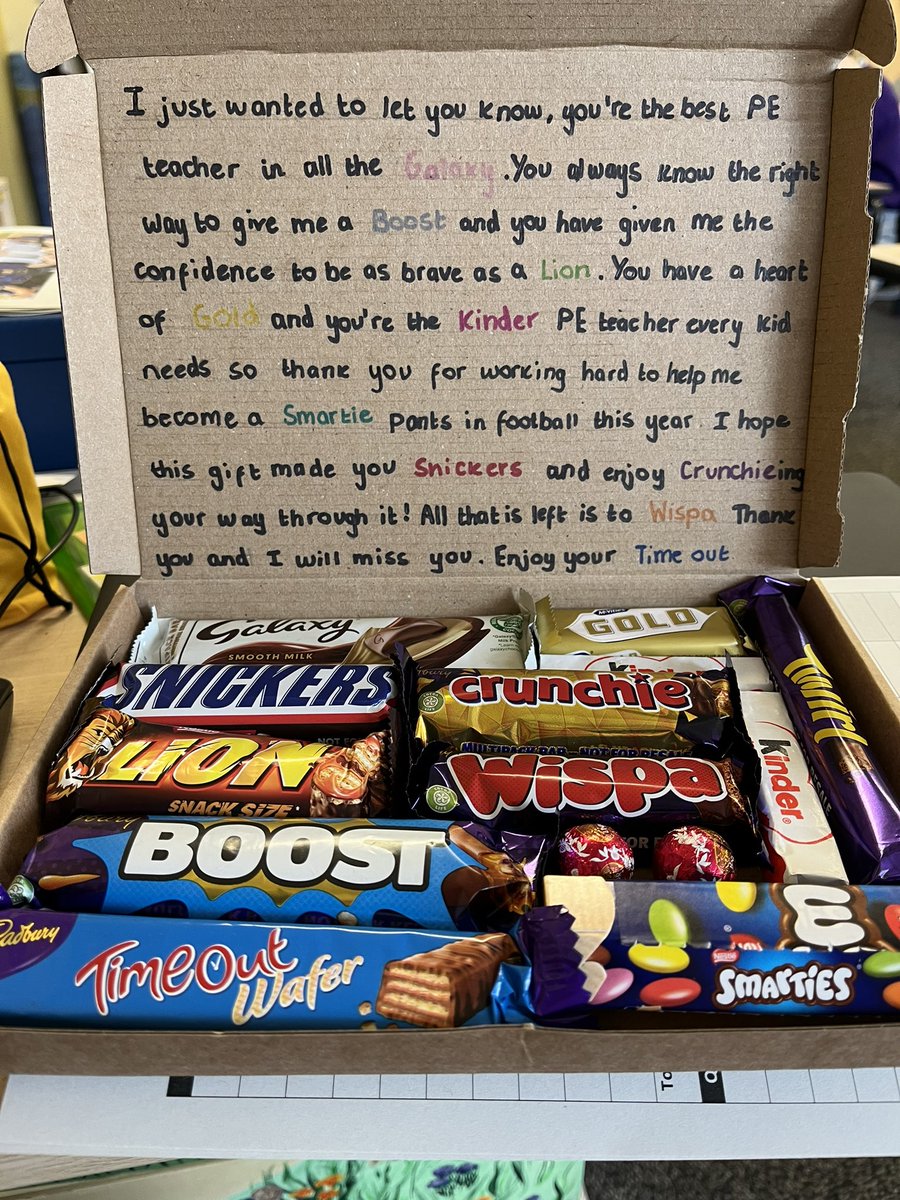 I just wanted to let you know, you're the best PE
teacher in all the Galaxy. You always know the right
way to give me a Boost and you have given me the
confidence to be as brave as a Lion. You have a heart
of Gold and you're the Kinder PE teacher every kid
needs so thank you for working hard to help me
become a Smartie pants in football this year. I hope
this gift made you Snickers and enjoy Crunchieing
your way through it! All that is left is to Wispa Thank
you and I will miss you. Enjoy your Time out
Galaxy
SMOOTH MILK
McVitie's
GOLD
Kin
TWIRL
SNICKERS
Crunchie
NOT FOR
LION
SNACK SIZE
MULTIPACK BAR - NOT FOR RESALE
Wispa
Kinder
BOOST
Cadbury
TimeOut
Wafer
Nestlé
SMARTIES